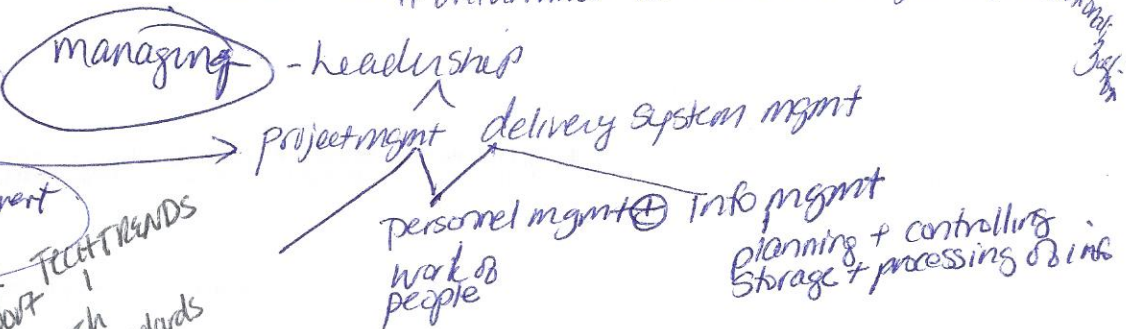 managing - Leadership
project mgmt delivery system mgmt
personnel mgmt + Info mgmt
work of
people
planning + controlling
storage + processing of info
TECH TRENDS